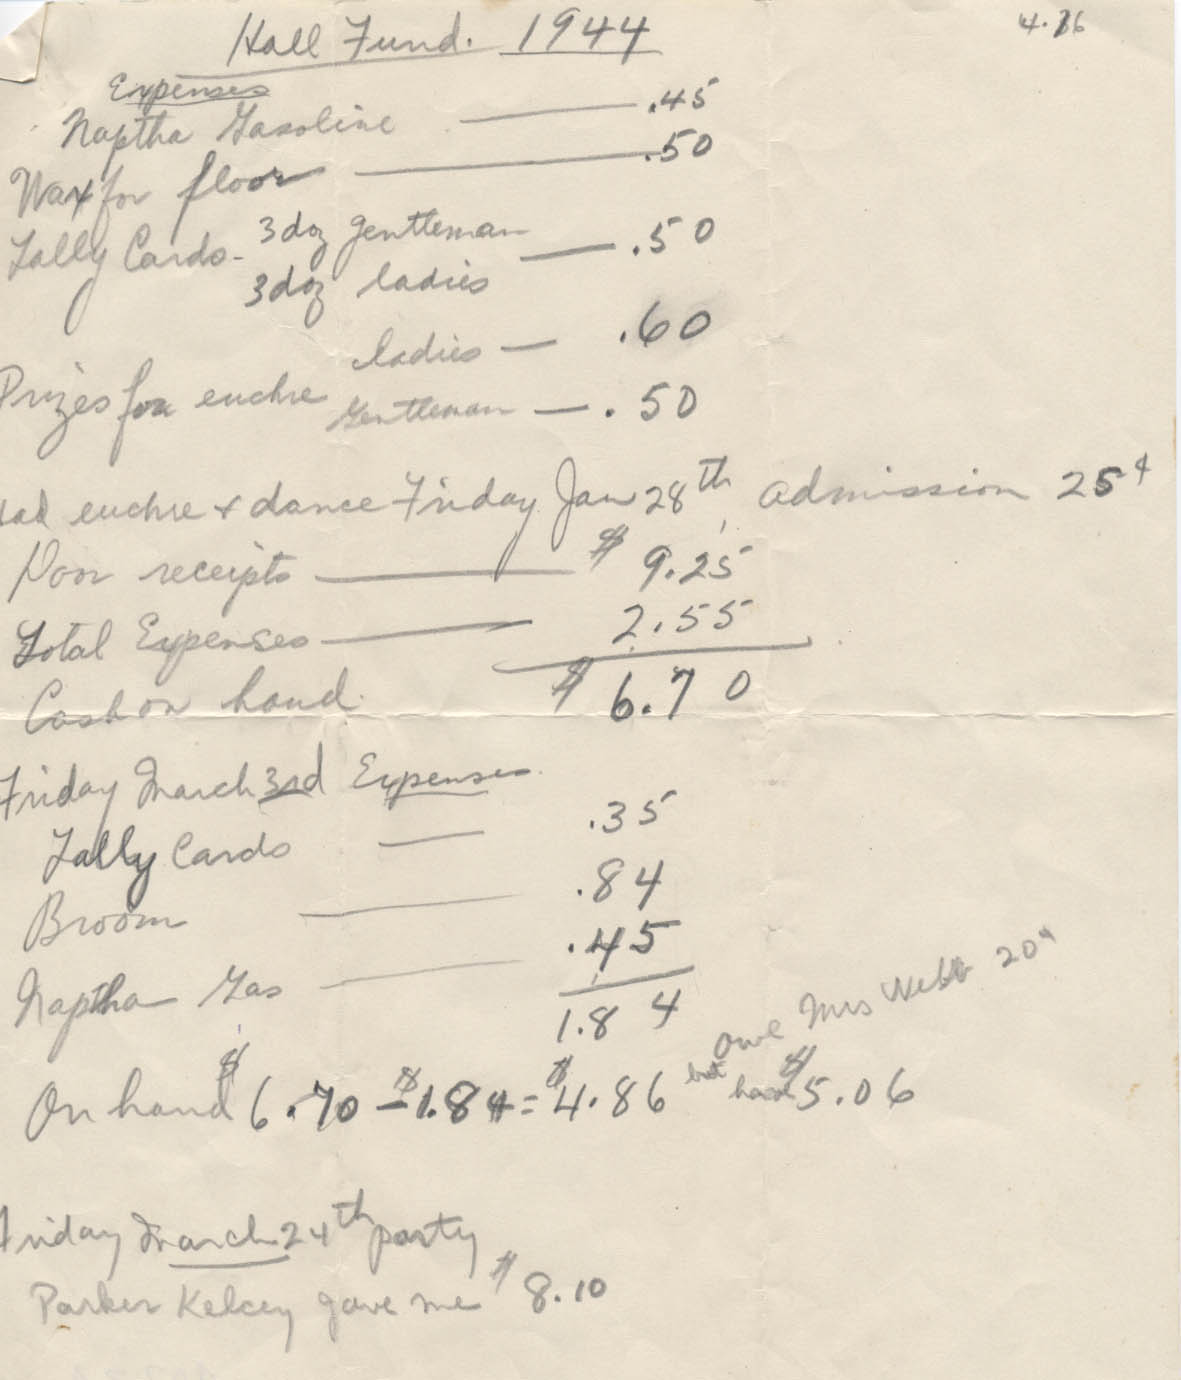 Hall Fund. 1944
Expenses
Naptha Gasoline — .45
Wax for floor — .50
Tally Cards - 3 doz gentleman — .50
3 doz ladies
ladies — .60
Prizes for euchre
Gentleman — .50
Had euchre & dance Friday Jan 28th, admission 25¢
Door receipts — $ 9.25
Total Expenses — 2.55
Cash on hand. $ 6.70
Friday March 3rd Expenses.
Tally Cards — .35
Broom — .84
Naptha Gas — .45
1.84
owe Mrs Webb 20¢
On hand $6.70 - $1.84 = $4.86 but have $5.06
Friday March 24th party
Parker Kelcey gave me $ 8.10